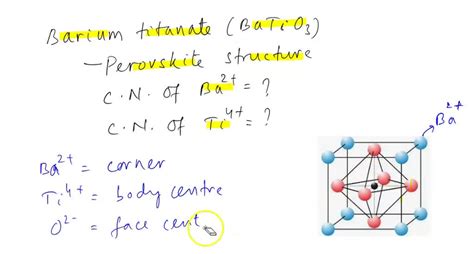 Barium titanate (BaTiO₃)
— Perovskite structure
C.N. of Ba²⁺ = ?
C.N. of Ti⁴⁺ = ?
Ba²⁺
Ba²⁺ = corner
Ti⁴⁺ = body centre
O²⁻ = face cent